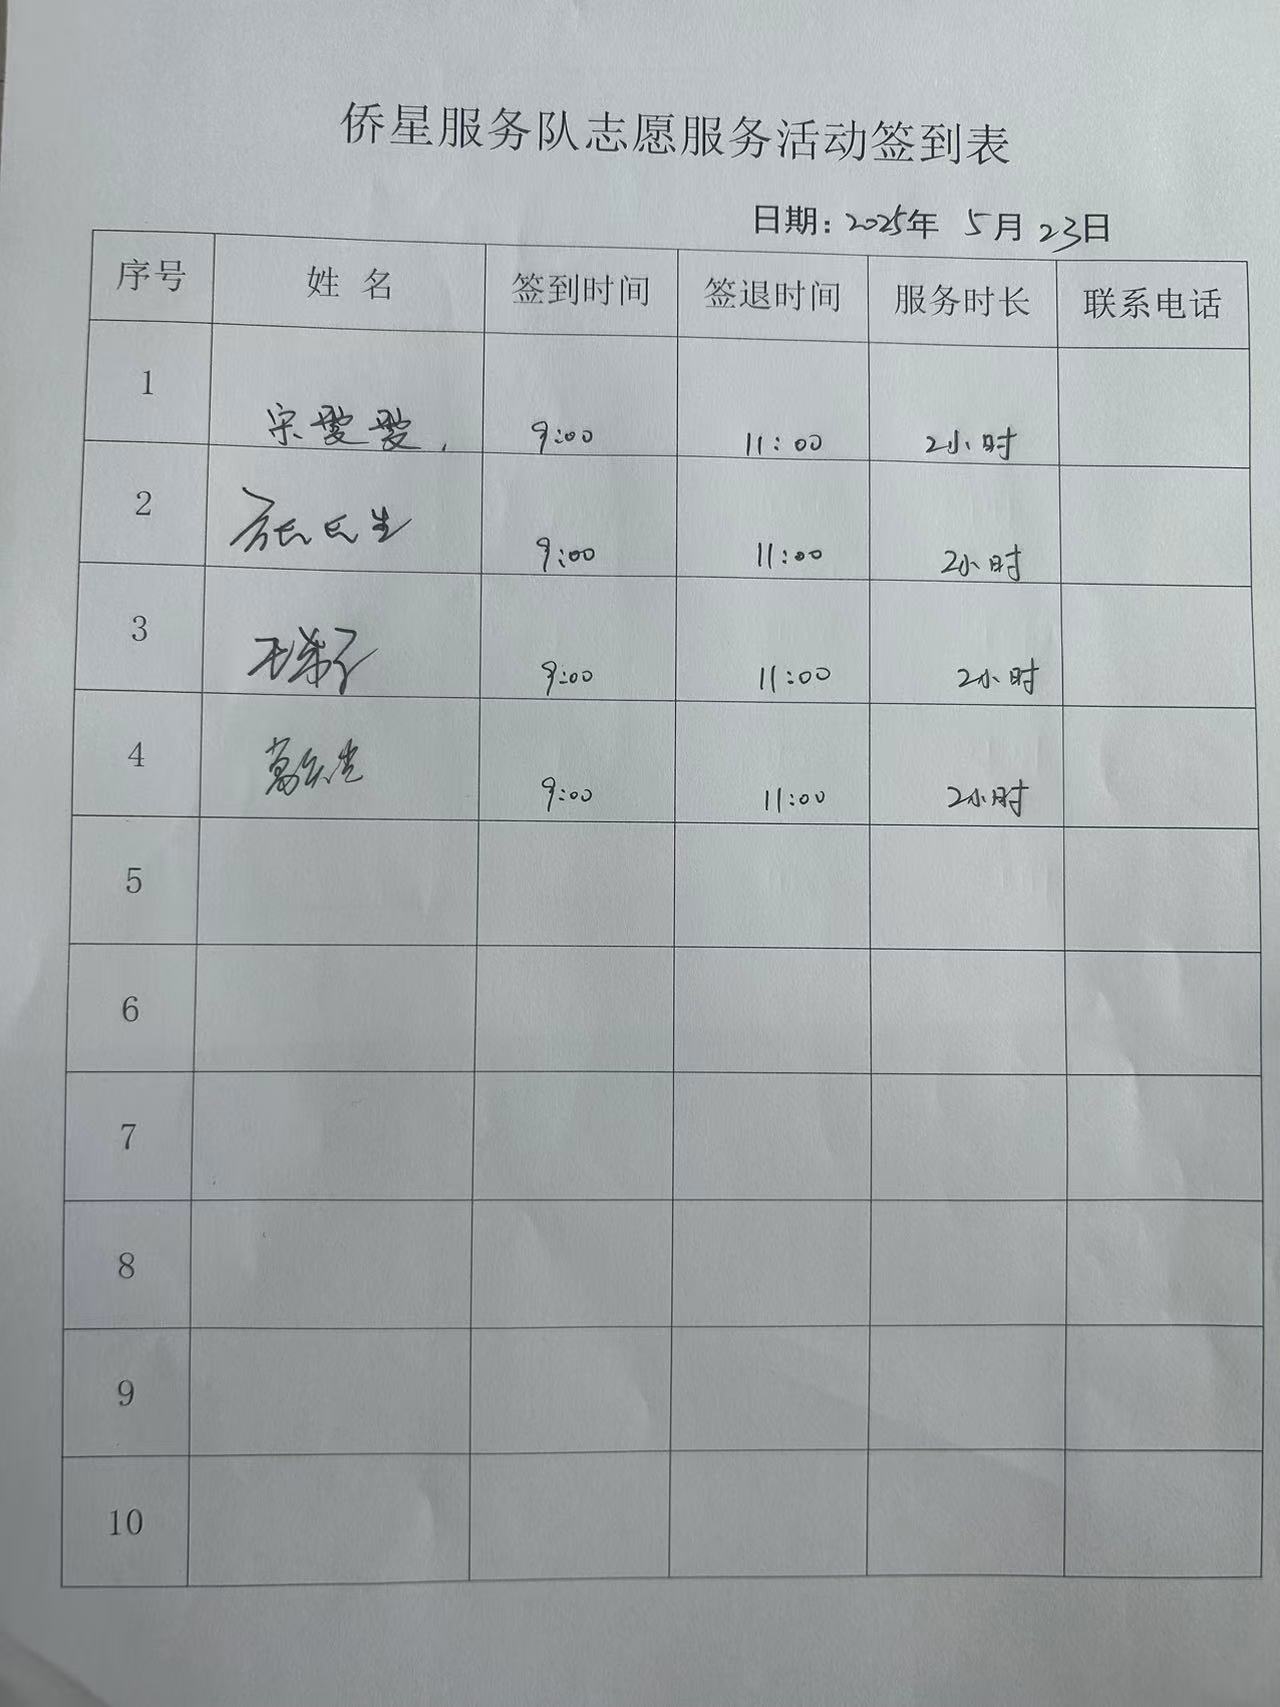 侨星服务队志愿服务活动签到表
日期：2025年 5月 23日
序号 姓 名 签到时间 签退时间 服务时长 联系电话
1 宋雯雯 9:00 11:00 2小时
2 9:00 11:00 2小时
3 9:00 11:00 2小时
4 9:00 11:00 2小时
5
6
7
8
9
10